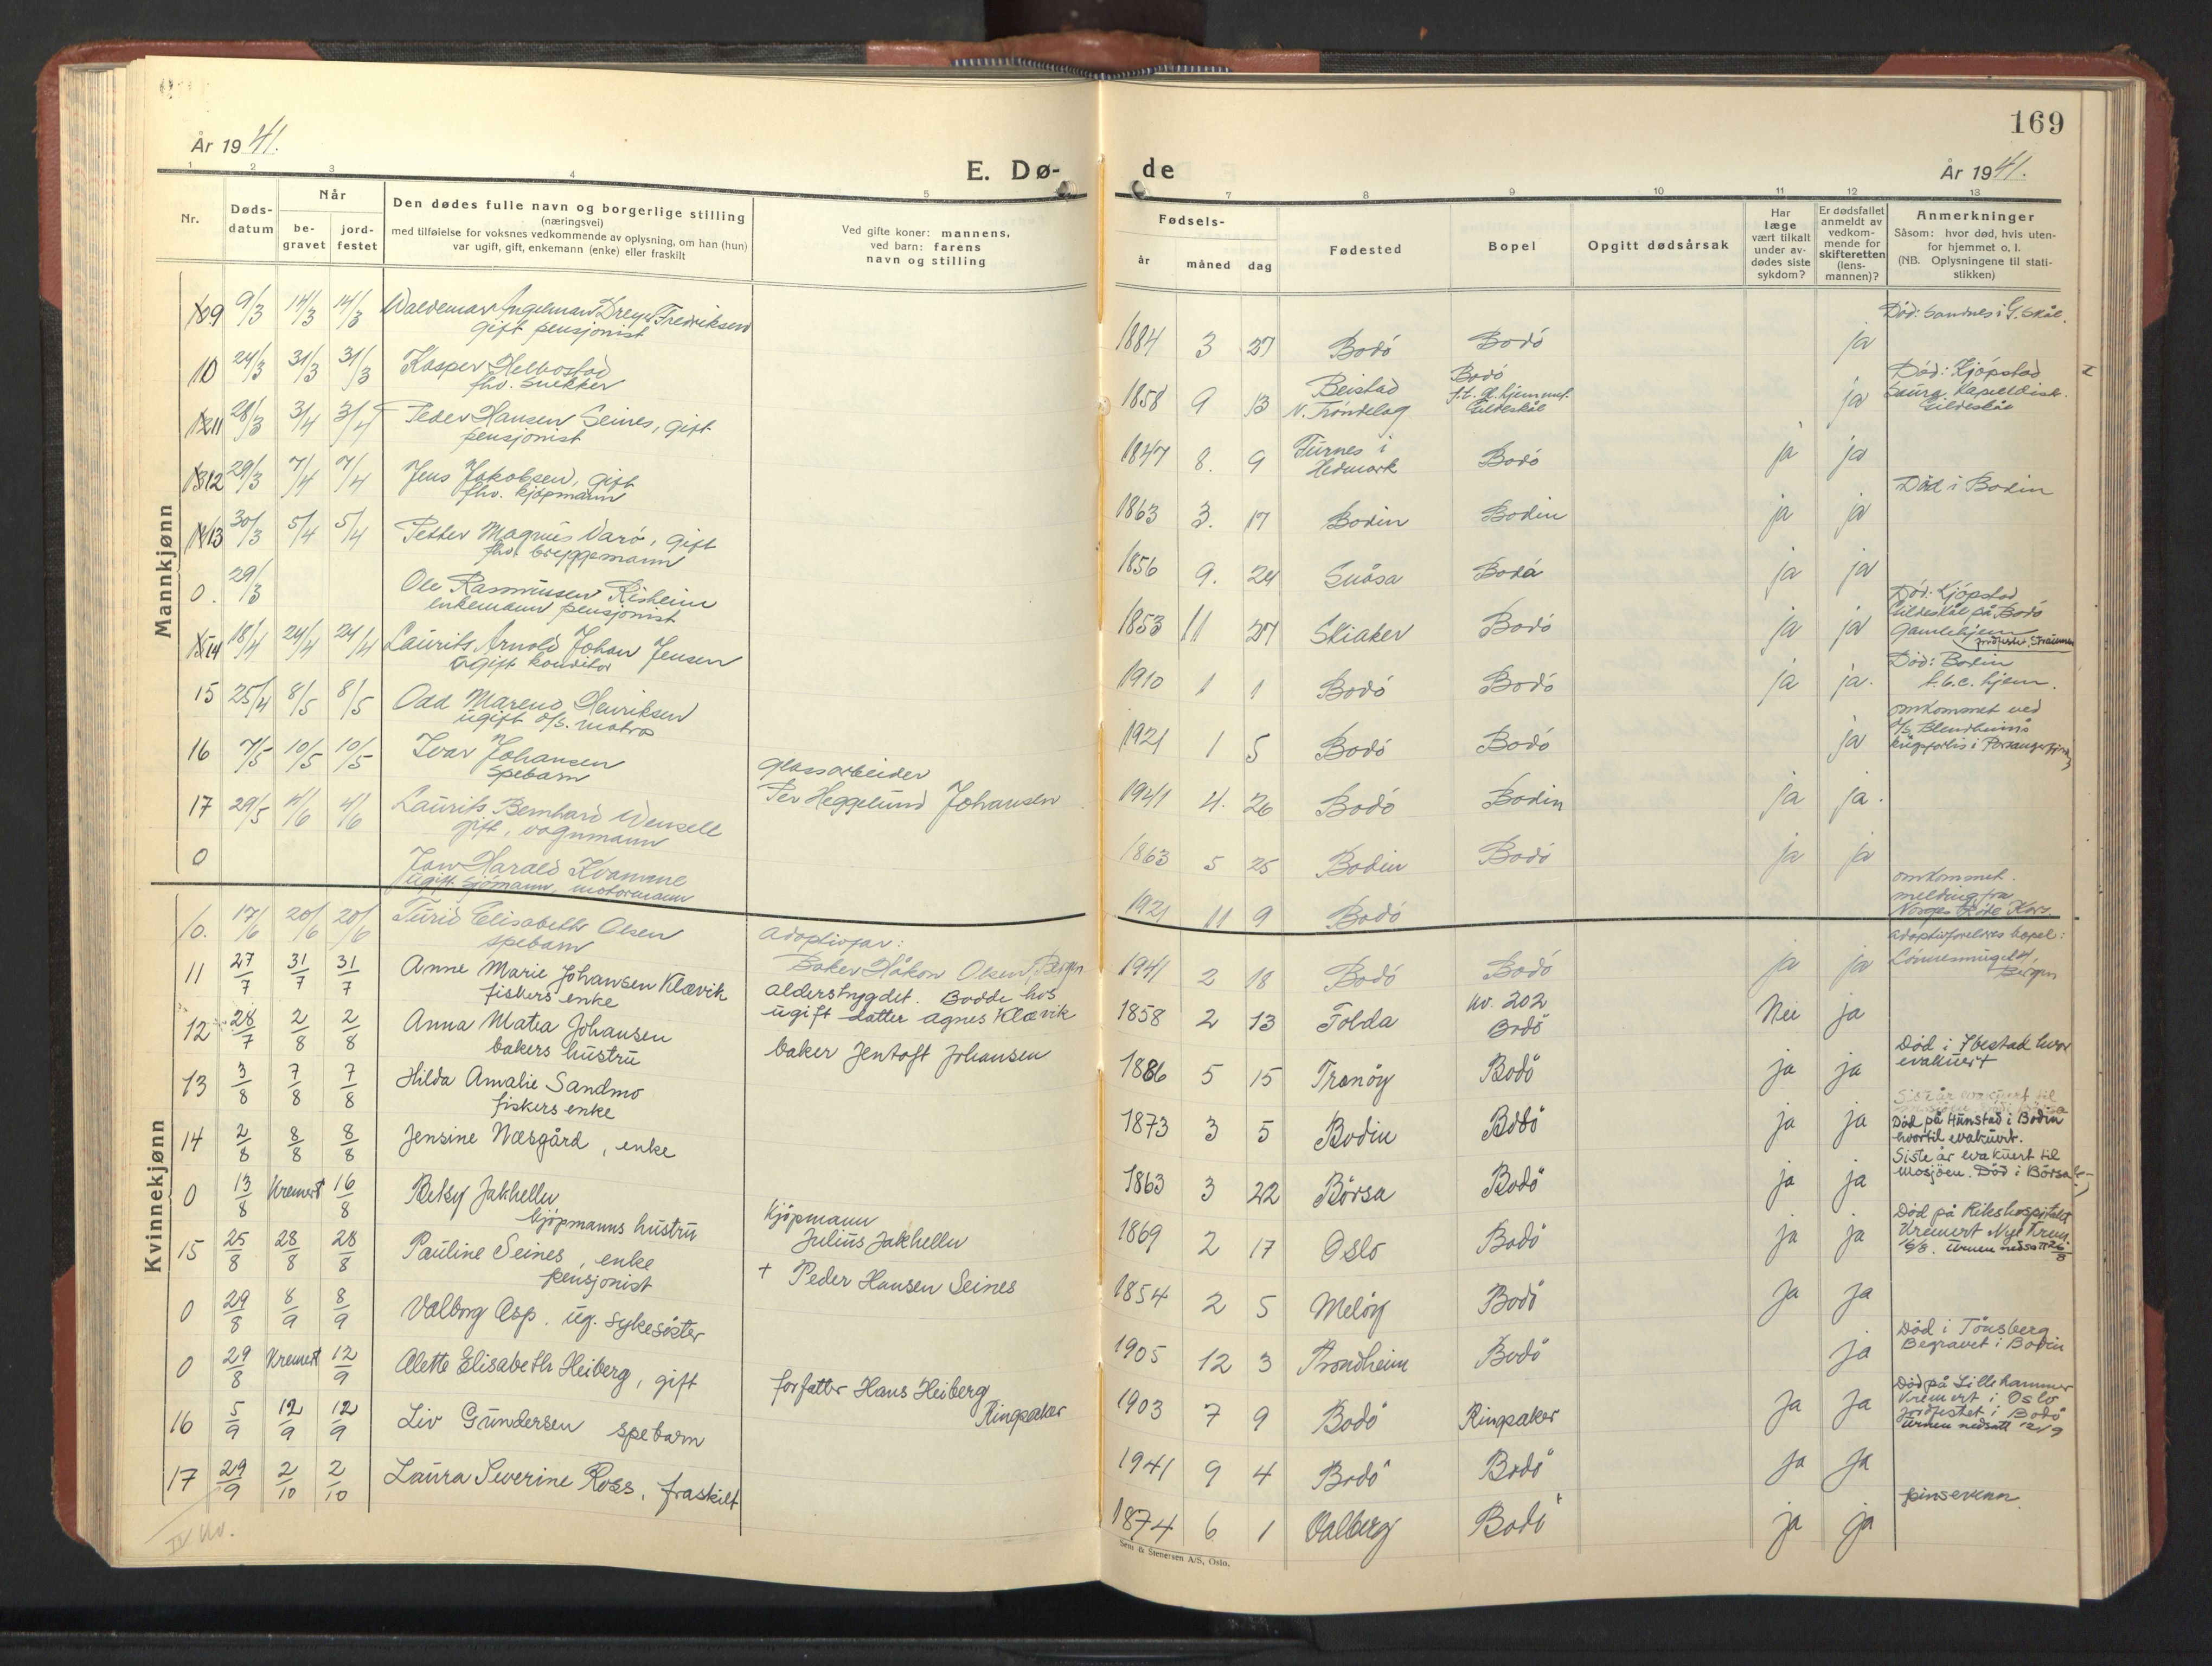 169
År 1941.
E. Dø-
de
År 1941.
1 2 3 4 5 7 8 9 10 11 12 13
Nr.
Døds-
datum
Når
be-
gravet
jord-
festet
Den dødes fulle navn og borgerlige stilling
(næringsvei)
med tilføielse for voksnes vedkommende av oplysning, om han (hun)
var ugift, gift, enkemann (enke) eller fraskilt
Ved gifte koner: mannens,
ved barn: farens
navn og stilling
Fødsels-
år måned dag
Fødested
Bopel
Opgitt dødsårsak
Har
læge
vært tilkalt
under av-
dødes siste
sykdom?
Er dødsfallet
anmeldt av
vedkom-
mende for
skifteretten
(lens-
mannen)?
Anmerkninger
Såsom: hvor død, hvis uten-
for hjemmet o. l.
(NB. Oplysningene til stati-
stikken)
Mannkjønn
9 9/3 14/3 14/3 Waldemar Ingelman Dreyer Fredriksen
gift pensjonist
1884 3 27 Bodó Bodó ja
Død: Sandnes i G.skål.
10 24/3 31/3 31/3 Kasper Helbostad
fhv. snekker
1858 9 13 Beistad
N. Tróndelag
Bodó
Gildeskål
ja
Død: Kjópstad
Gildeskål
11 28/3 3/4 3/4 Peder Hansen Seines, gift
pensjonist
1847 8. 9 Furnes i
Hedmark
Bodó ja ja
12 29/3 7/4 7/4 Jens Jakobsen, gift
fhv. kjópmann
1863 3. 17 Bodin Bodin ja ja
Død i Bodin
13 30/3 5/4 5/4 Petter Magnus Varó, gift
fhv. bryggemann
1856 9. 24 Snåsa Bodó ja ja
0. 29/3 Ole Rasmussen Risheim
enkemann pensjonist
1853 11 27 Skiaker Bodó ja ja
Død: Kjópstad
Gildeskål på Bodó
Gamlehjem
14 18/4 24/4 24/4 Laurits Arnold Johan Jensen
ugift konditor
1910 1 1 Bodó Bodó ja ja.
Død: Bodin
t.b.c. hjem.
15 25/4 8/5 8/5 Odd Mareno Henriksen
ugift d/s. matros
1921 1 5 Bodó Bodó ja
omkommet ved
d/s. Blendheims
krigsforlis i Porsangerfjord
16 7/5 10/5 10/5 Ivar Johansen
spebarn
glassarbeider
Per Heggelund Johansen
1941 4. 26 Bodó Bodin ja ja.
17 29/5 4/6 4/6 Laurits Bernhard Wensell
gift, vognmann
1863 5 25 Bodin Bodó ja ja
0 Jan Harald Kvamme
ugift sjómann, motormann
1921 11 9 Bodó
omkommet.
melding fra
Norges Róde Kors.
Kvinnekjønn
10. 17/6 20/6 20/6 Turid Elisabeth Olsen
spebarn
adoptivfar:
Baker Håkon Olsen, Bergen
1941 2 18 Bodó Bodó ja ja
adoptivforeldres bopel:
Bergen
11 27/7 31/7 31/7 Anne Marie Johansen Klævik
fiskers enke
alderstrygdet. Bodde hos
ugift datter Agnes Klævik
1858 2 13 Folda kv. 202
Bodö
Nei ja
12 28/7 2/8 2/8 Anna Matea Johansen
bakers hustru
baker Jentoft Johansen
1886 5 15 Tranöy Bodö ja ja
Död i Ibestad hvor
evakuert
13 3/8 7/8 7/8 Hilda Amalie Sandmo
fiskers enke
1873 3 5 Bodin Bodö ja ja
Död på Hunstad i Bodin
hvortil evakuert.
14 2/8 8/8 8/8 Jensine Næsgård, enke
1863 3 22 Börsa Bodö ja ja
Siste år evakuert til
Mosjöen. Död i Börsa
0 13/8 Kremert 16/8 Betsy Jakhelln
kjöpmanns hustru
Kjöpmann
Julius Jakhelln
1869 2 17 Oslo Bodö ja ja
Död på Rikshospitalet
Kremert Nye Krem.
16/8. Urnen nedsatt 26/8
15 25/8 28/8 28/8 Pauline Seines, enke
pensjonist
+ Peder Hansen Seines
1854 2 5 Melöy Bodö ja ja
0 29/8 8/9 8/9 Valborg Asp. ug. sykesöster
1905 12 3 Trondheim Bodö ja
Död i Tönsberg
Begravet i Bodin
0 29/8 Kremert 12/9 Alette Elisabeth Heiberg, gift
forfatter Hans Heiberg
Ringsaker
1903 7 9 Bodö Ringsaker ja ja
Död på Lillehammer
Kremert i Oslo
jordfestet i Bodö
Urnen nedsatt 12/9
16 5/9 12/9 12/9 Liv Gundersen spebarn
1941 9 4 Bodö Bodö ja ja
17 29/9 2/10 2/10 Laura Severine Ross, fraskilt
1874 6 1 Valberg Bodö ja ja
pinsevenn
IV kv.
Sem & Stenersen A/S, Oslo.